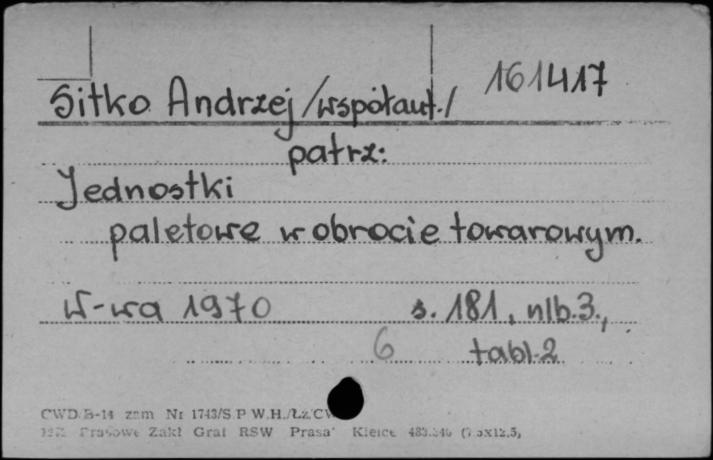 161417
Sitko Andrzej /współaut./
patrz:
Jednostki
paletowe w obrocie towarowym.
W-wa 1970 s. 181, nlb. 3.,
6 tabl. 2
CWD/B-14 zam Nr 1743/S P W.H./Łz/CW
Prasowe Zakł Graf RSW "Prasa" Kielce